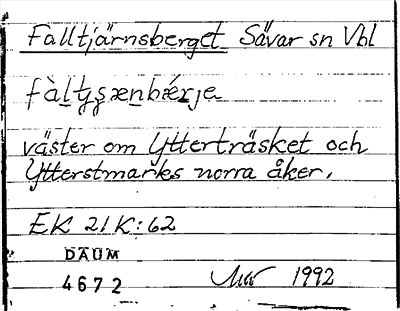 Falltjärnsberget Sävar sn Vbl
väster om Ytterträsket och
Ytterstmarks norra åker.
EK 21K:62
DAUM
4672 1992